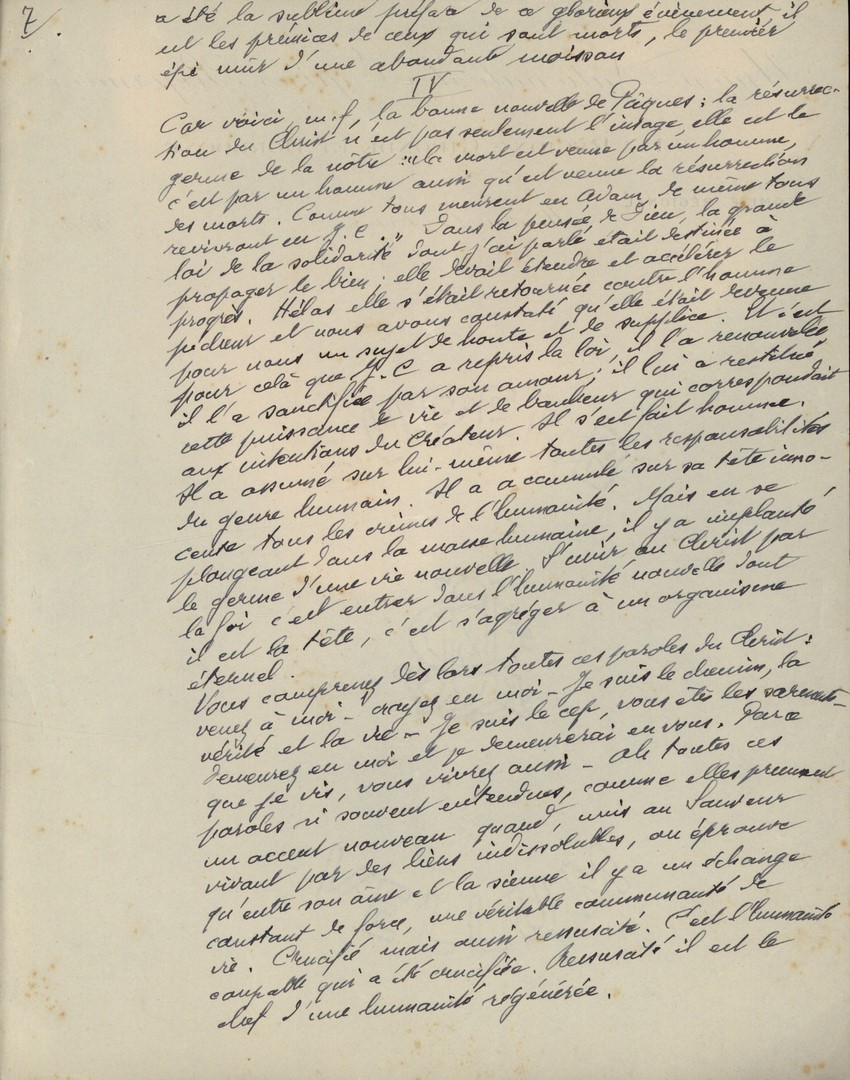 7
a été la sublime préface de ce glorieux événement, il
est les prémices de ceux qui sont morts, le premier
épi mûr d'une abondante moisson
IV
Car voici, m.f, la bonne nouvelle de Pâques : la résurrec-
tion du Christ n'est pas seulement l'image, elle est le
germe de la nôtre : "la mort est venue par un homme,
c'est par un homme aussi qu'est venue la résurrection
des morts. Comme tous meurent en Adam, de même tous
revivront en J.C." Dans la pensée de Dieu, la grande
loi de la solidarité dont j'ai parlé était destinée à
propager le bien ; elle devait étendre et accélérer le
progrès. Hélas elle s'était retournée contre l'homme
pécheur et nous avons constaté qu'elle était devenue
pour nous un sujet de honte et de supplice. Et c'est
pour celà que J.C a repris la loi, il l'a renouvelée,
il l'a sanctifiée par son amour ; il lui a restitué
cette puissance de vie et de bonheur qui correspondait
aux intentions du Créateur. Il s'est fait homme.
Il a assumé sur lui-même toutes les responsabilités
du genre humain. Il a accumulé sur sa tête inno-
cente tous les crimes de l'humanité. Mais en se
plongeant dans la masse humaine, il y a implanté
le germe d'une vie nouvelle. S'unir au Christ par
la foi c'est entrer dans l'humanité nouvelle dont
il est la tête, c'est s'agréger à un organisme
éternel.
Vous comprenez dès lors toutes ces paroles du Christ :
venez à moi - croyez en moi - Je suis le chemin, la
vérité et la vie - Je suis le cep, vous êtes les sarments -
demeurez en moi et je demeurerai en vous. Parce
que je vis, vous vivrez aussi - Oh toutes ces
paroles si souvent entendues, comme elles prennent
un accent nouveau quand, unis au Sauveur
vivant par des liens indissolubles, on éprouve
qu'entre son âme et la sienne il y a un échange
constant de force, une véritable communauté de
vie. Crucifié mais aussi ressuscité. C'est l'humanité
coupable qui a été crucifiée. Ressuscité il est le
chef d'une humanité régénérée.